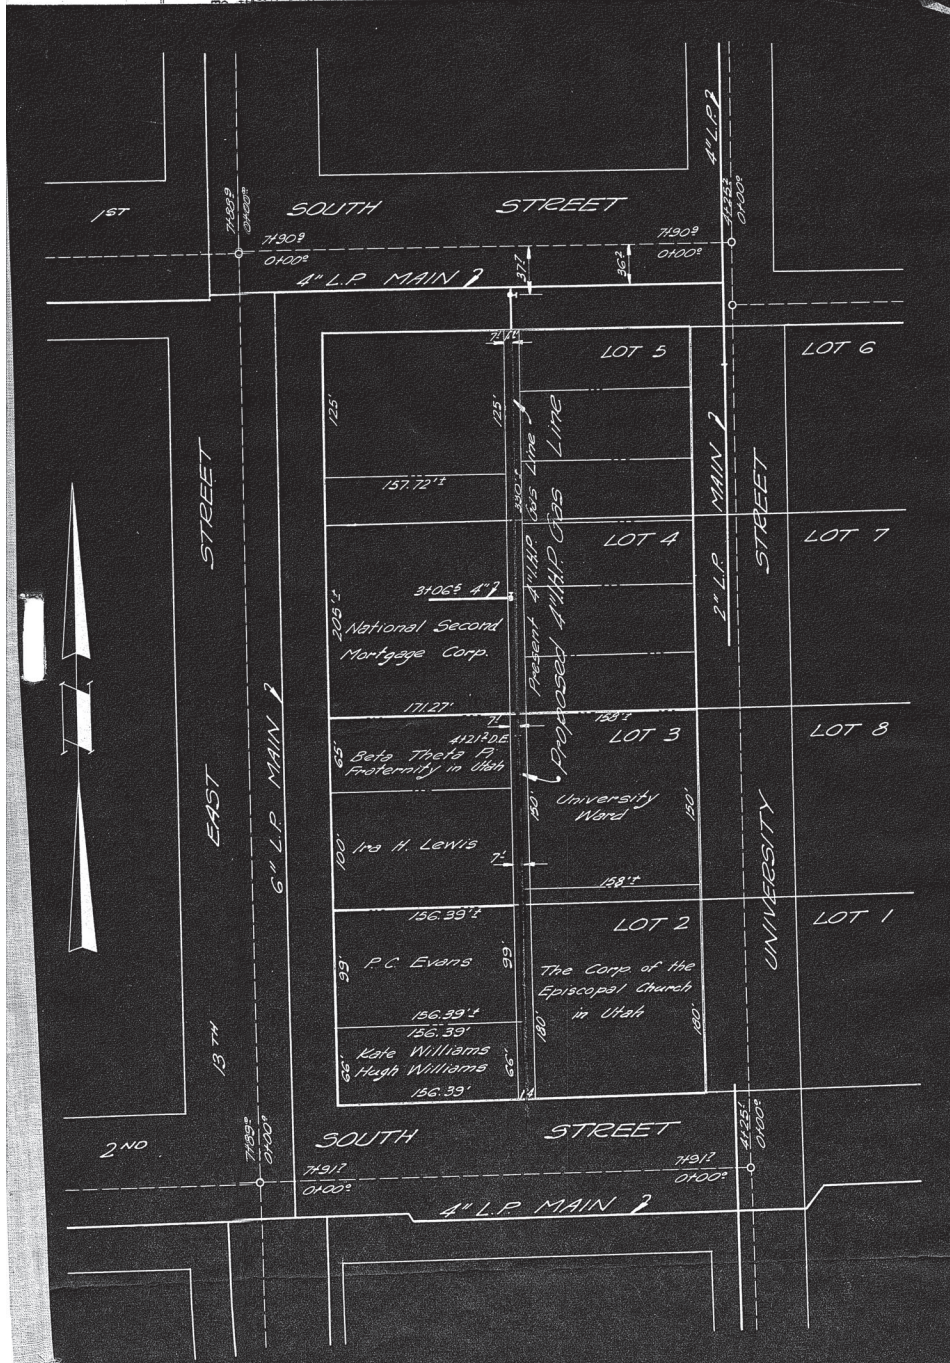 1ST
SOUTH STREET
7+88⁹
0+00⁰
7+90⁹
0+00⁰
7+90⁹
0+00⁰
4+25²
0+00⁰
4" L.P.
4" L.P. MAIN
37²
36²
LOT 5
LOT 6
125'
125'
157.72'±
330'±
Present 4" I.H.P. Gas Line
Proposed 4" I.H.P. Gas Line
2" L.P. MAIN
LOT 4
LOT 7
3+06⁵ 4"
205'±
National Second
Mortgage Corp.
171.27'
7'
158'±
4+21² D.E.
LOT 3
LOT 8
65'
Beta Theta Pi
Fraternity in Utah
University
Ward
150'
150'
100'
Ira H. Lewis
7'
158'±
156.39'±
LOT 2
LOT 1
99'
P.C. Evans
99'
The Corp. of the
Episcopal Church
in Utah
156.39'±
156.39'
180'
180'
66'
Kate Williams
Hugh Williams
66'
156.39'
13TH EAST STREET
6" L.P. MAIN
UNIVERSITY STREET
2ND
SOUTH STREET
7+89⁰
0+00⁰
7+91²
0+00⁰
7+91²
0+00⁰
4+25¹
0+00⁰
4" L.P. MAIN